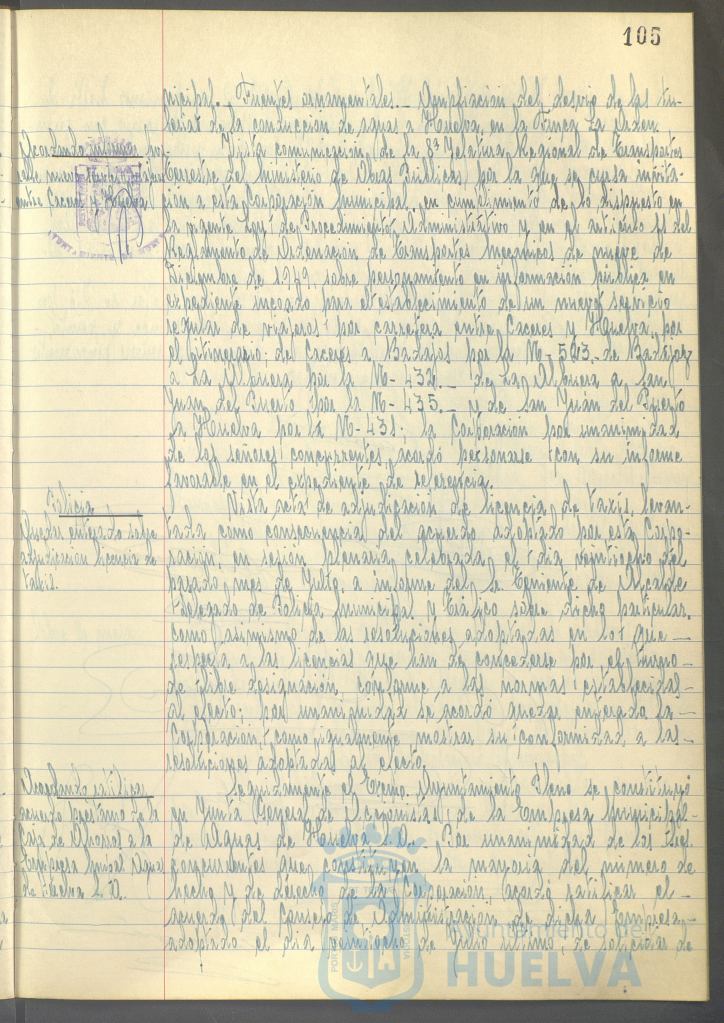 105
nicipal.- Fuentes ornamentales.- Ampliación del desvío de las tu-
berías de la conducción de aguas a Huelva, en la Finca La Orden.
Acordando informar fa-
vorable nuevo
entre Cáceres y Huelva.
Vista comunicación de la 8ª Jefatura Regional de Transportes
Terrestre del Ministerio de Obras Públicas, por la que se cursa invita-
ción a esta Corporación Municipal, en cumplimiento de lo dispuesto en
la vigente Ley de Procedimiento Administrativo y en el artículo 11 del
Reglamento de Ordenación de Transportes Mecánicos de nueve de
Diciembre de 1.949, sobre personamiento en información pública en
expediente incoado para el establecimiento de un nuevo servicio
regular de viajeros por carretera entre Cáceres y Huelva, por
el itinerario: de Cáceres a Badajoz por la N-523.- de Badajoz
a La Albuera por la N-432.- de La Albuera a San
Juan del Puerto por la N-435.- y de San Juan del Puerto
a Huelva por la N-431; la Corporación por unanimidad
de los señores concurrentes, acordó personarse con su informe
favorable en el expediente de referencia.
Policía
Quedar enterado sobre
adjudicación licencia de
taxis.
Vista acta de adjudicación de licencia de taxis, levan-
tada como consecuencia del acuerdo adoptado por esta Corpo-
ración, en sesión plenaria celebrada el día veintiocho del
pasado mes de Julio, a informe del Sr. Teniente de Alcalde
Delegado de Policía Municipal y Tráfico sobre dicho particular,
como asimismo de las resoluciones adoptadas en lo que -
respecta a las licencias que han de concederse por el turno -
de libre designación, conforme a las normas establecidas -
al efecto; por unanimidad se acordó quedar enterada la -
Corporación, como igualmente mostrar su conformidad, a las -
resoluciones adoptadas al efecto.
Acordando ratificar
acuerdo préstamo de la
Caja de Ahorros a la
Empresa Mpal. Aguas
de Huelva S.A.
Seguidamente el Excmo. Ayuntamiento Pleno se constituyó
en Junta General de Accionistas, de la Empresa Municipal -
de Aguas de Huelva S.A. Por unanimidad de los Sres.
concurrentes que constituyen la mayoría del número de
hecho y de derecho de la Corporación, acordó ratificar el -
acuerdo del Consejo de Administración de dicha Empresa -
adoptado el día veintiocho de Julio último, de solicitar de
Ayuntamiento de
HUELVA